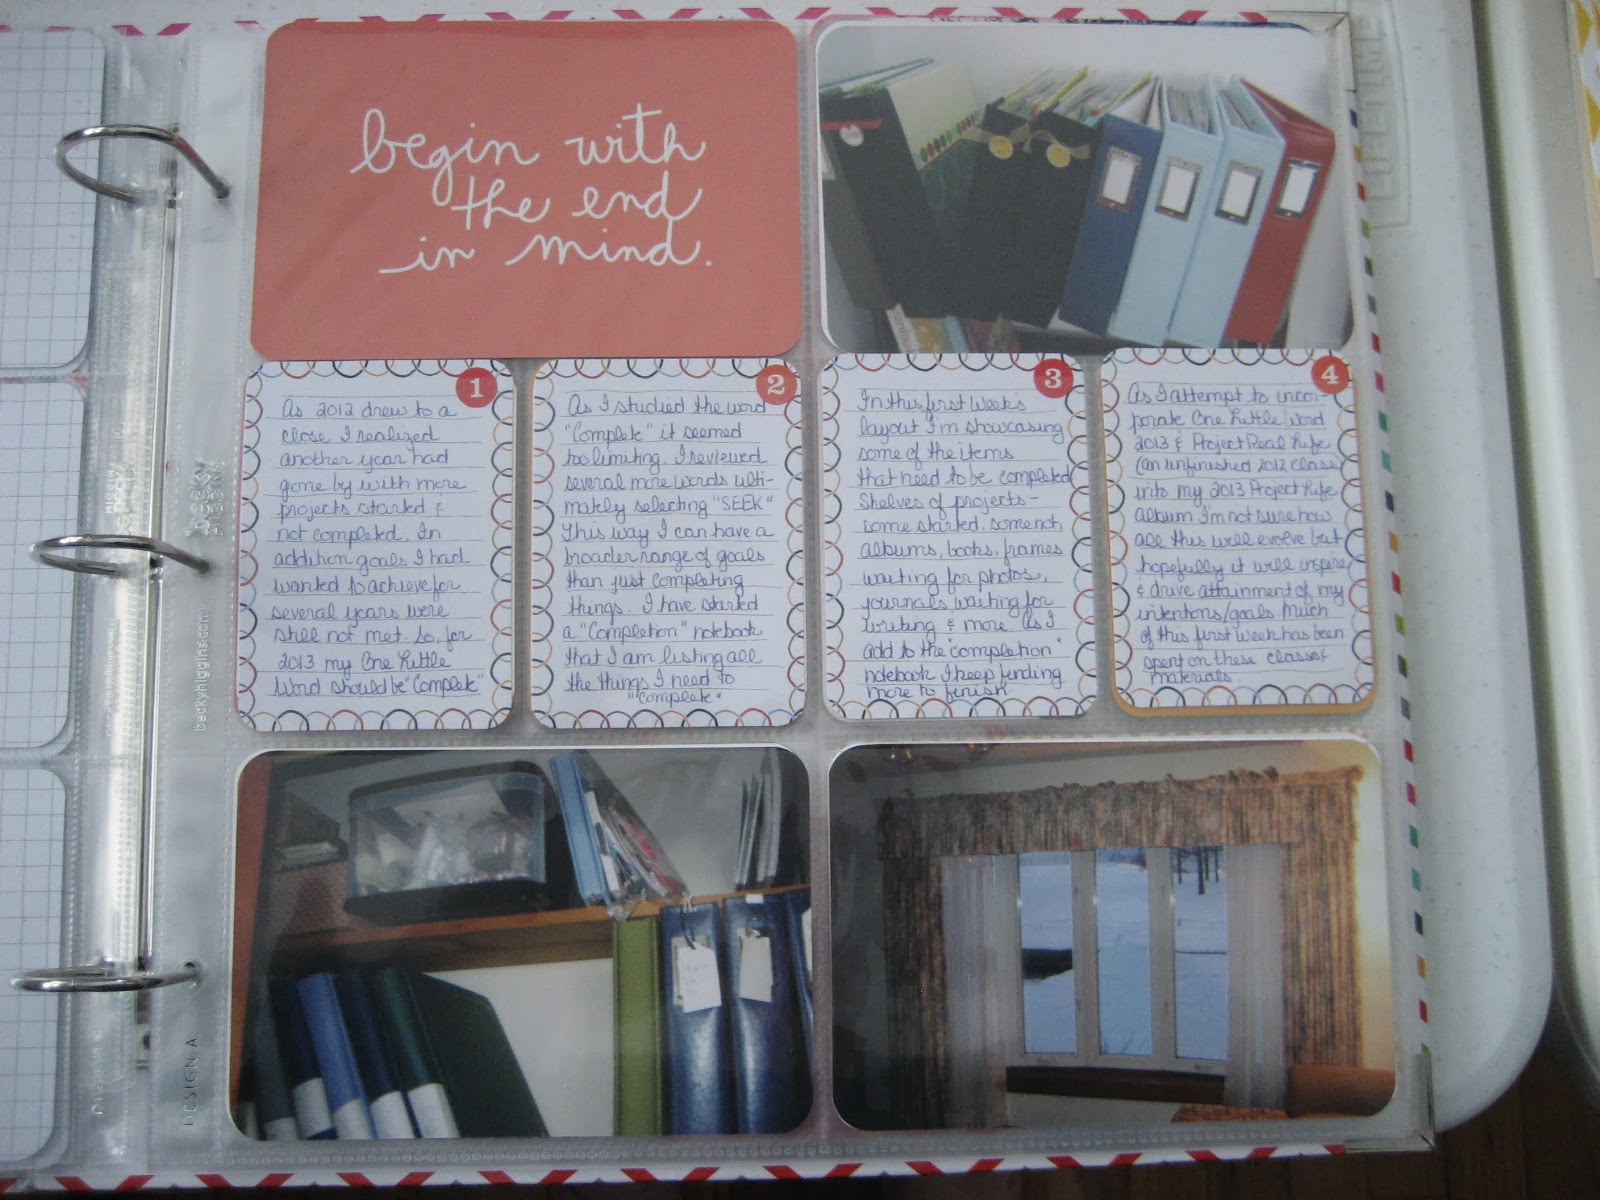 begin with
the end
in mind.
1
As 2012 drew to a
close I realized
another year had
gone by with more
projects started &
not completed. In
addition goals I had
wanted to achieve for
several years were
still not met. So, for
2013 my One Little
Word should be "Complete"
2
As I studied the word
"Complete" it seemed
too limiting. I reviewed
several more words ulti-
mately selecting "SEEK"
This way I can have a
broader range of goals
than just completing
things. I have started
a "Completion" notebook
that I am listing all
the things I need to
"Complete"
3
In this first week's
layout I'm showcasing
some of the items
that need to be completed
Shelves of projects -
some started, some not,
albums, books, frames
waiting for photos,
journals waiting for
writing & more. As I
add to the "completion"
notebook I keep finding
more to finish.
4
As I attempt to incor-
porate One Little Word
2013 & Project Real Life
(an unfinished 2012 class)
into my 2013 Project Life
album I'm not sure how
all this will evolve but
hopefully it will inspire
& drive attainment of my
intentions/goals. Much
of this first week has been
spent on these classes &
materials.
becky
higgins
beckyhiggins.com
DESIGN A
LIFETIME